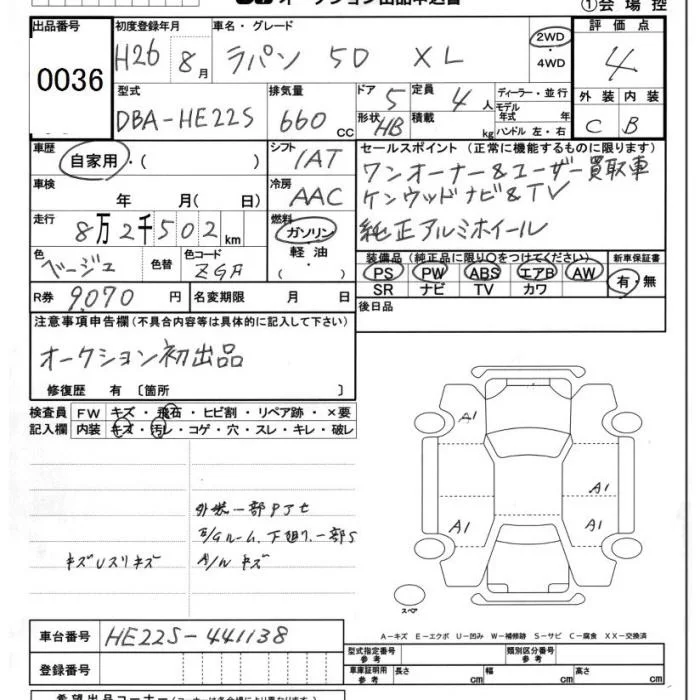 オークション出品申込書
①会場控
出品番号
0036
初度登録年月
H26 8月
車名・グレード
ラパン 5D XL
2WD
・
4WD
評価点
4
型式
DBA-HE22S
排気量
660 cc
ドア 5
形状 HB
定員 4 人
積載 kg
ディーラー・並行
モデル年式 年
ハンドル 左・右
外装 内装
C B
車歴
自家用・( )
シフト
IAT
セールスポイント (正常に機能するものに限ります)
ワンオーナー&ユーザー買取車
ケンウッドナビ&TV
純正アルミホイール
車検
年 月( 日)
冷房
AAC
走行
8万2千502km
燃料
ガソリン
・
軽油
・
( )
色
ベージュ
色替
色コード
ZGA
装備品(純正品に限り○をつけてください)
新車保証書
PS PW ABS エアB AW
SR ナビ TV カワ
有・無
R券 9,070 円
名変期限 月 日
後日品
注意事項申告欄(不具合内容等は具体的に記入して下さい)
オークション初出品
修復歴 有〔箇所 〕
検査員
記入欄
FW キズ・飛石・ヒビ割・リペア跡・×要
内装 キズ・汚レ・コゲ・穴・スレ・キレ・破レ
外装一部
E/Gルーム、下廻り、一部S
A/W キズ
キズUスリキズ
A1
A1
A1
A1
スペア
A-キズ E-エクボ U-凹み W-補修跡 S-サビ C-腐食 XX-交換済
車台番号
HE22S-441138
登録番号
型式指定番号
参考
類別区分番号
参考
車庫証明用
参考
長さ cm
幅 cm
高さ cm
希望出品コーナー